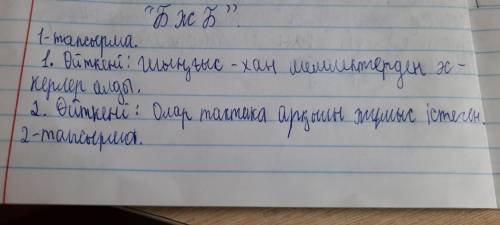 "БжБ".
1-тапсырма.
1. Өйткені: Шыңғыс-хан мемлекттерден э-
керлер алды.
2. Өйткені: Олар тактика арқылы жұмыс істеген.
2-тапсырма.